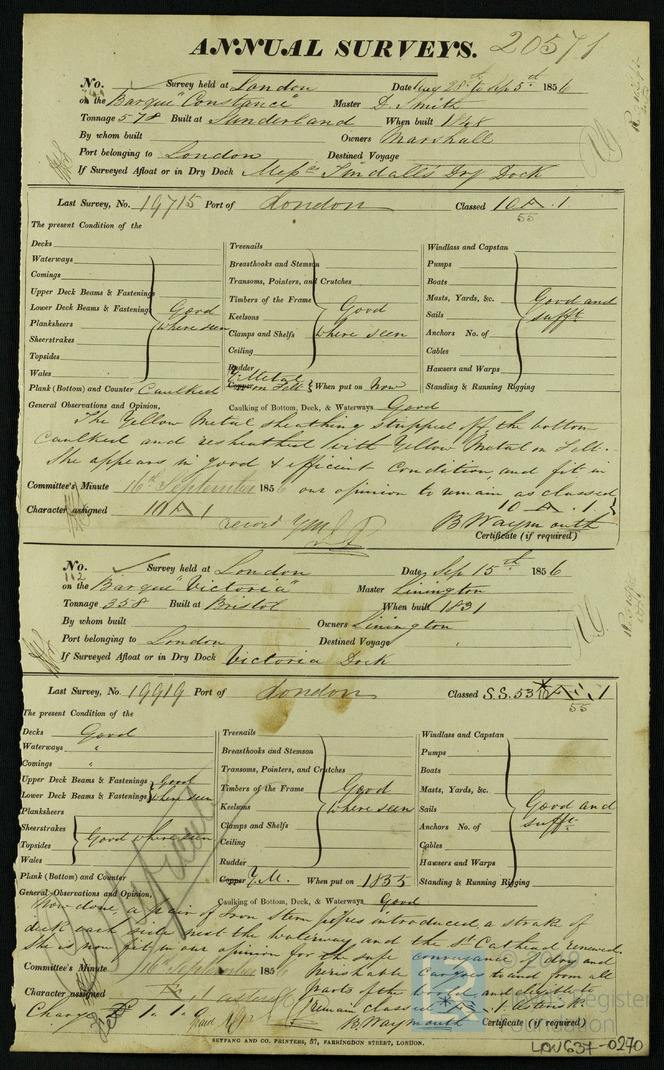 ANNUAL SURVEYS. 20571
No. Survey held at London Date Aug 28th to Sep 5th 1856
on the Barque "Constance" Master D. Smith
Tonnage 578 Built at Sunderland When built 1848
By whom built Owners Marshall
Port belonging to London Destined Voyage
If Surveyed Afloat or in Dry Dock Tindall's Dry Dock
Last Survey, No. 19715 Port of London Classed 10 A. 1
55
The present Condition of the
Decks
Waterways
Comings
Upper Deck Beams & Fastenings
Lower Deck Beams & Fastenings Good
Planksheers where seen
Sheerstrakes
Topsides
Wales
Plank (Bottom) and Counter Caulked
Treenails
Breasthooks and Stemson
Transoms, Pointers, and Crutches
Timbers of the Frame Good
Keelsons
Clamps and Shelfs where seen
Ceiling
Rudder
Y. Metal
Copper on Felt When put on Now
Windlass and Capstan
Pumps
Boats
Masts, Yards, &c. Good and
Sails sufft.
Anchors No. of
Cables
Hawsers and Warps
Standing & Running Rigging
General Observations and Opinion, Caulking of Bottom, Deck, & Waterways Good
The Yellow Metal sheathing stripped off, the bottom
Caulked and resheathed with Yellow Metal on Felt.
She appears in good & efficient Condition, and fit in
Committee's Minute 16th September 1856 our opinion to remain as classed
Character assigned 10 A 1 10 A. 1
record YM B Waymouth
Certificate (if required)
No. Survey held at London Date Sep 15th 1856
112
on the Barque "Victoria" Master Linington
Tonnage 358 Built at Bristol When built 1831
By whom built Owners Linington
Port belonging to London Destined Voyage
If Surveyed Afloat or in Dry Dock Victoria Dock
Last Survey, No. 19919 Port of London Classed S.S. 53 * 1
55
The present Condition of the
Decks Good
Waterways "
Comings "
Upper Deck Beams & Fastenings Good
Lower Deck Beams & Fastenings where seen
Planksheers
Sheerstrakes
Topsides Good where seen
Wales
Plank (Bottom) and Counter
Treenails
Breasthooks and Stemson
Transoms, Pointers, and Crutches
Timbers of the Frame Good
Keelsons where seen
Clamps and Shelfs
Ceiling
Rudder
Copper Y.M. When put on 1855
Windlass and Capstan
Pumps
Boats
Masts, Yards, &c.
Sails Good and
Anchors No. of sufft.
Cables
Hawsers and Warps
Standing & Running Rigging
General Observations and Opinion, Caulking of Bottom, Deck, & Waterways Good
Now done, a pair of Iron Stem pipes introduced, a strake of
deck each side next the waterway and the St. Cathead renewed
She is now fit in our opinion for the safe conveyance of dry and
Committee's Minute 16th September 1856 perishable Cargoes to and from all
Character assigned parts of the world, and eligible to
Charge £ 1. 1. 0 remain classed
B. Waymouth Certificate (if required)
SEYFANG AND CO. PRINTERS, 57, FARRINGDON STREET, LONDON.
LON637-0270